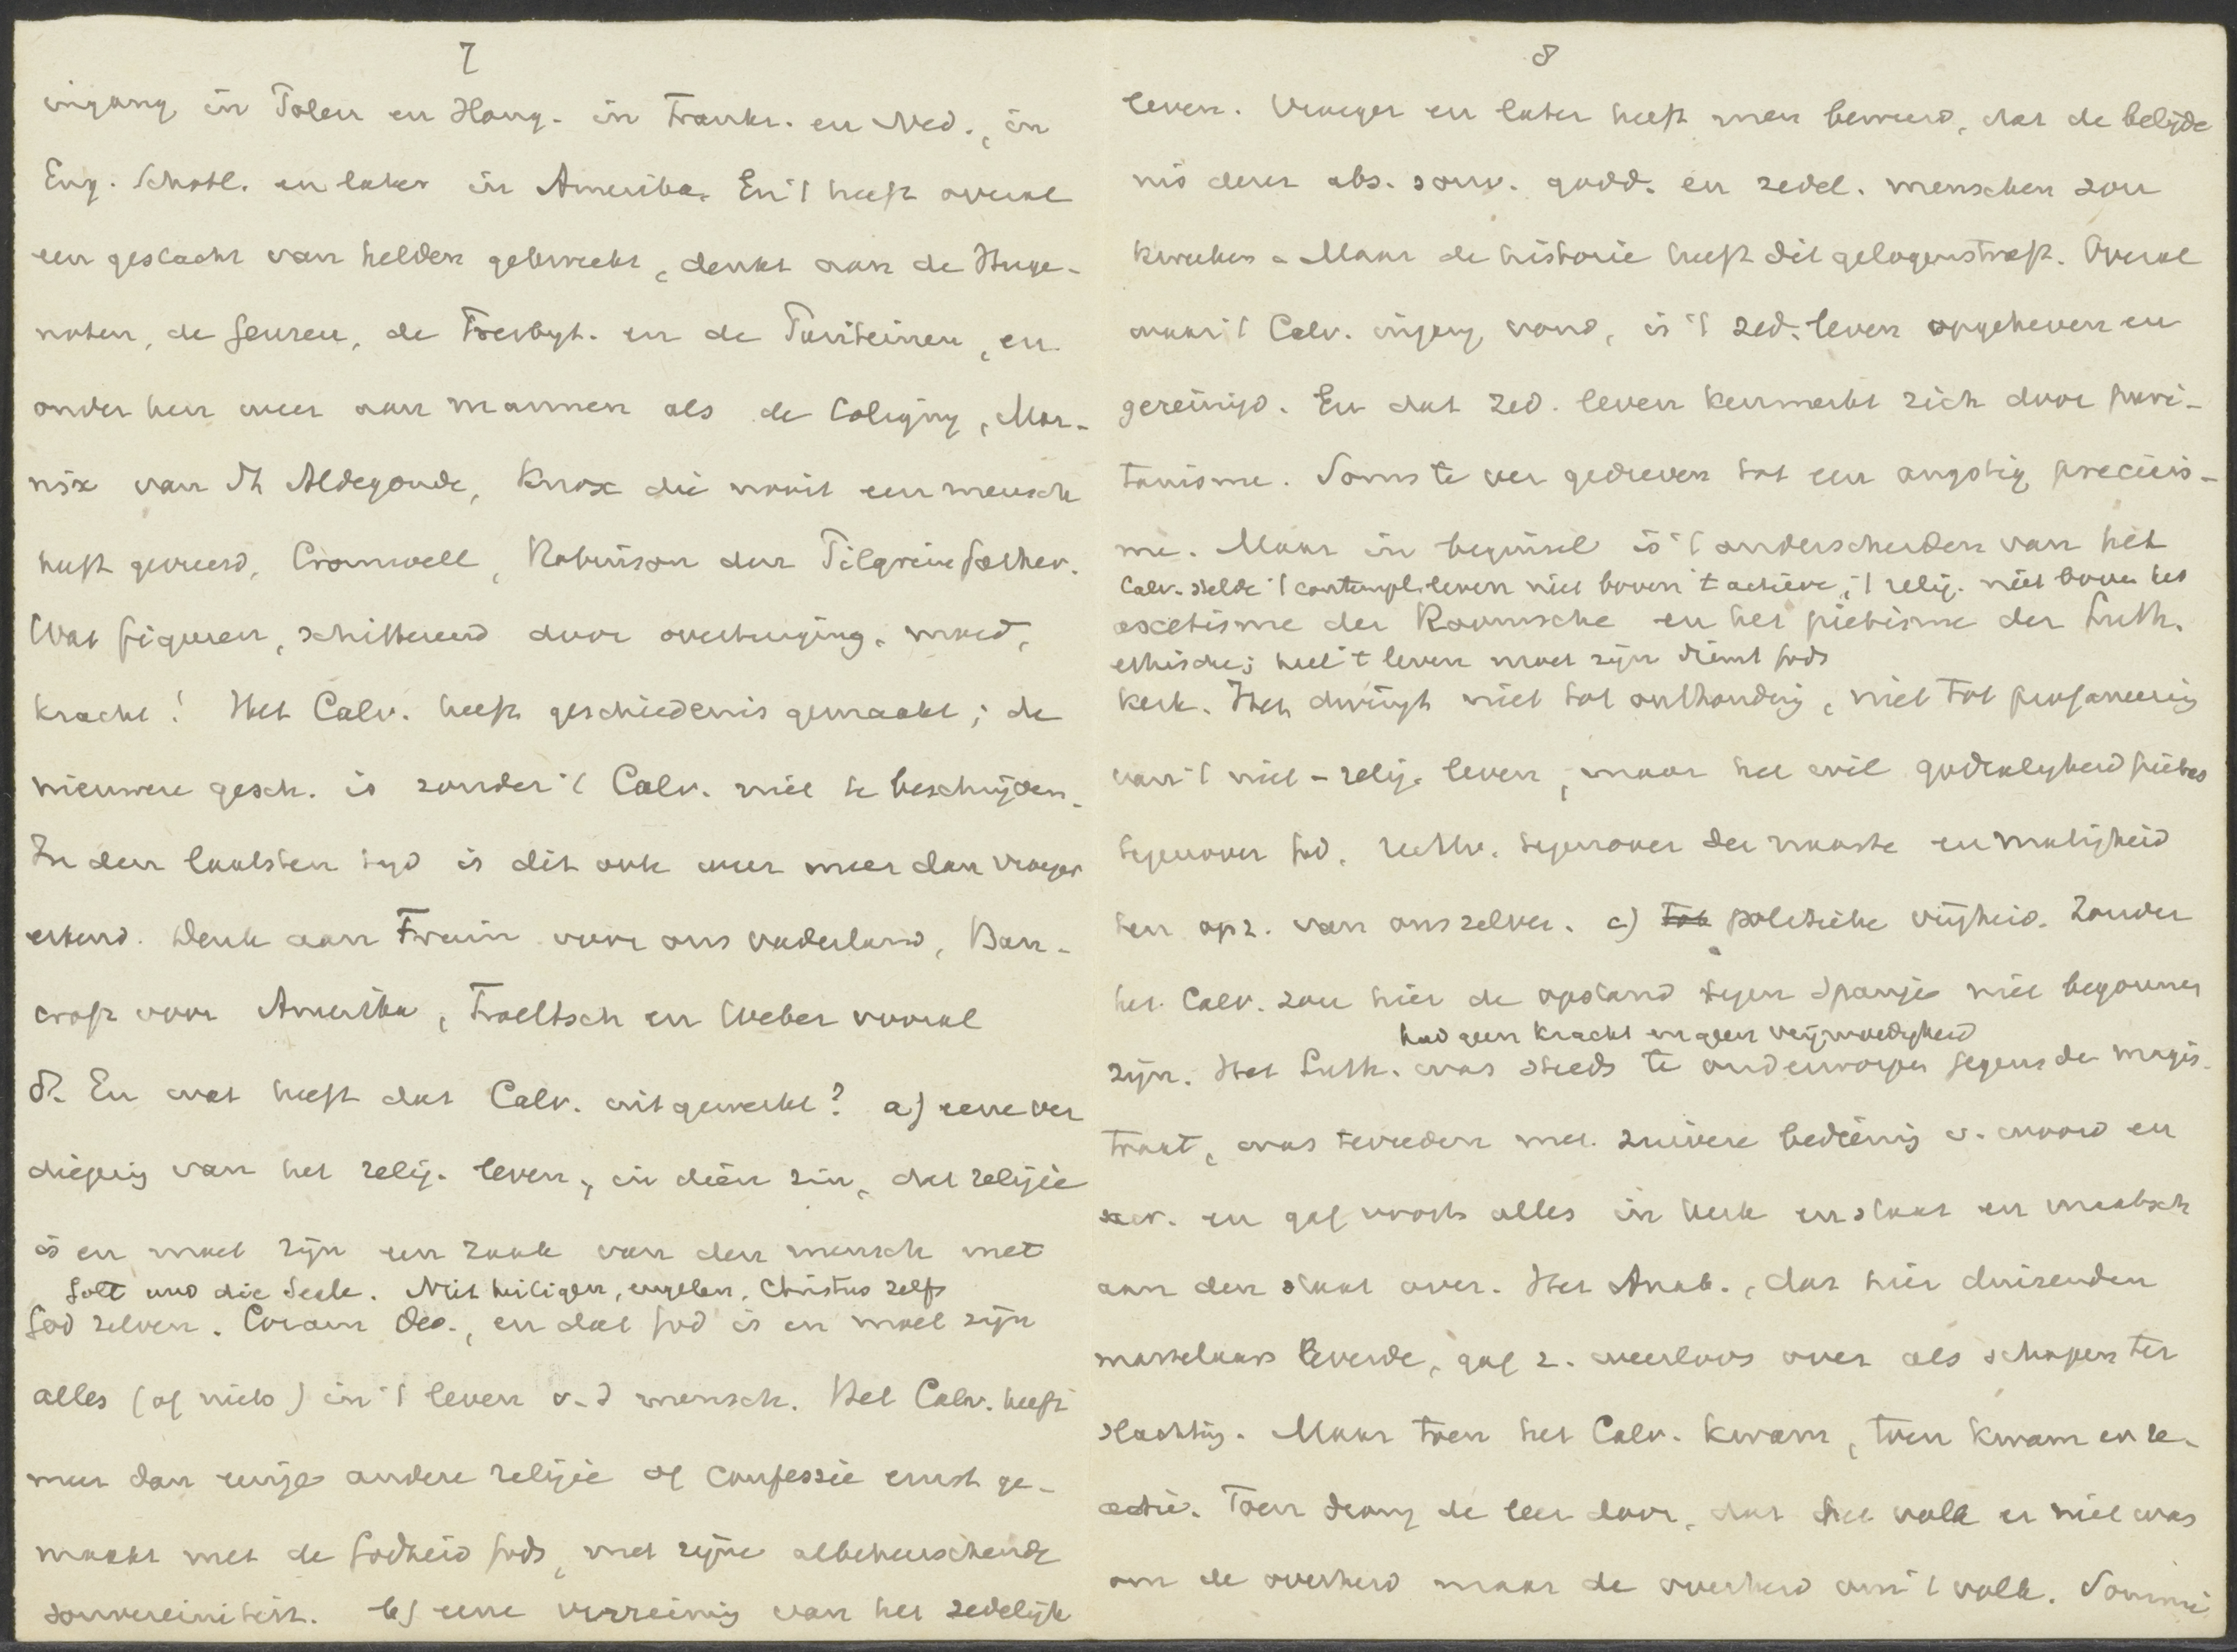 7
ingang in Polen en Hong. in Frankr. en Ned., in
Eng. Schotl. en later in Amerika. En 't heeft overal
een geslacht van helden gekweekt, denkt aan de Huge-
noten, de Geuzen, de Presbyt. en de Puriteinen, en
onder hen weer aan mannen als de Coligny, Mar-
nix van St Aldegonde, Knox die nooit een mensch
heeft gevreesd, Cromwell, Robinson der Pilgrimfather.
Wat figuren, schitterend door overtuiging, moed,
kracht! Het Calv. heeft geschiedenis gemaakt; de
nieuwere gesch. is zonder 't Calv. niet te beschrijven.
In den laatsten tijd is dit ook weer meer dan vroeger
erkend. Denk aan Fruin voor ons vaderland, Ban-
croft voor Amerika, Troeltsch en Weber vooral
8. En wat heeft dat Calv. uitgewerkt? a) eene ver
dieping van het relig. leven, in dien zin, dat religie
is en moet zijn een zaak van den mensch met
Gott und die Seele. Niet heiligen, engelen, Christus zelfs
God zelven. Coram Deo., en dat God is en moet zijn
alles (of niets) in 't leven v. d mensch. Het Calv. heeft
meer dan eenige andere religie of confessie ernst ge-
maakt met de Godheid Gods, met zijne albeheerschende
souvereiniteit. b) eene verreinig van het zedelijk
8
leven. Vroeger en later heeft men beweerd, dat de belijde
nis dezer abs. souv. godd. en zedel. menschen zou
kweeken. Maar de historie heeft dit gelogenstraft. Overal
waar 't Calv. ingang vond, is 't zed. leven opgeheven en
gereinigd. En dat zed. leven kenmerkt zich door puri-
tanisme. Soms te ver gedreven tot een angstig precisis-
me. Maar in beginsel is 't onderscheiden van het
Calv. stelde 't contempl. leven niet boven 't actieve, 't relig. niet boven het
ascetisme der Roomsche en het piëtisme der Luth.
ethische; heel 't leven moet zijn dienst Gods
kerk. Het dwingt niet tot onthouding, niet tot profaneering
van 't niet-relig. leven, maar het wil godzaligheid pietas
tegenover God, rechtv. tegenover den naaste en matigheid
ten opz. van ons zelven. c) politieke vrijheid. Zonder
het Calv. zou hier de opstand tegen Spanje niet begonnen
had geen kracht en geen vrijmoedigheid
zijn. Het Luth. was steeds te onderworpen jegens de magis-
traat, was tevreden met zuivere bediening v. woord en
sacr. en gaf voorts alles in kerk en staat en maatsch
aan den staat over. Het Anab., dat hier duizenden
martelaars leverde, gaf z. weerloos over als schapen ter
slachting. Maar toen het Calv. kwam, toen kwam er re-
actie. Toen drong de leer door, dat het volk er niet was
om de overheid maar de overheid om 't volk. Sommi